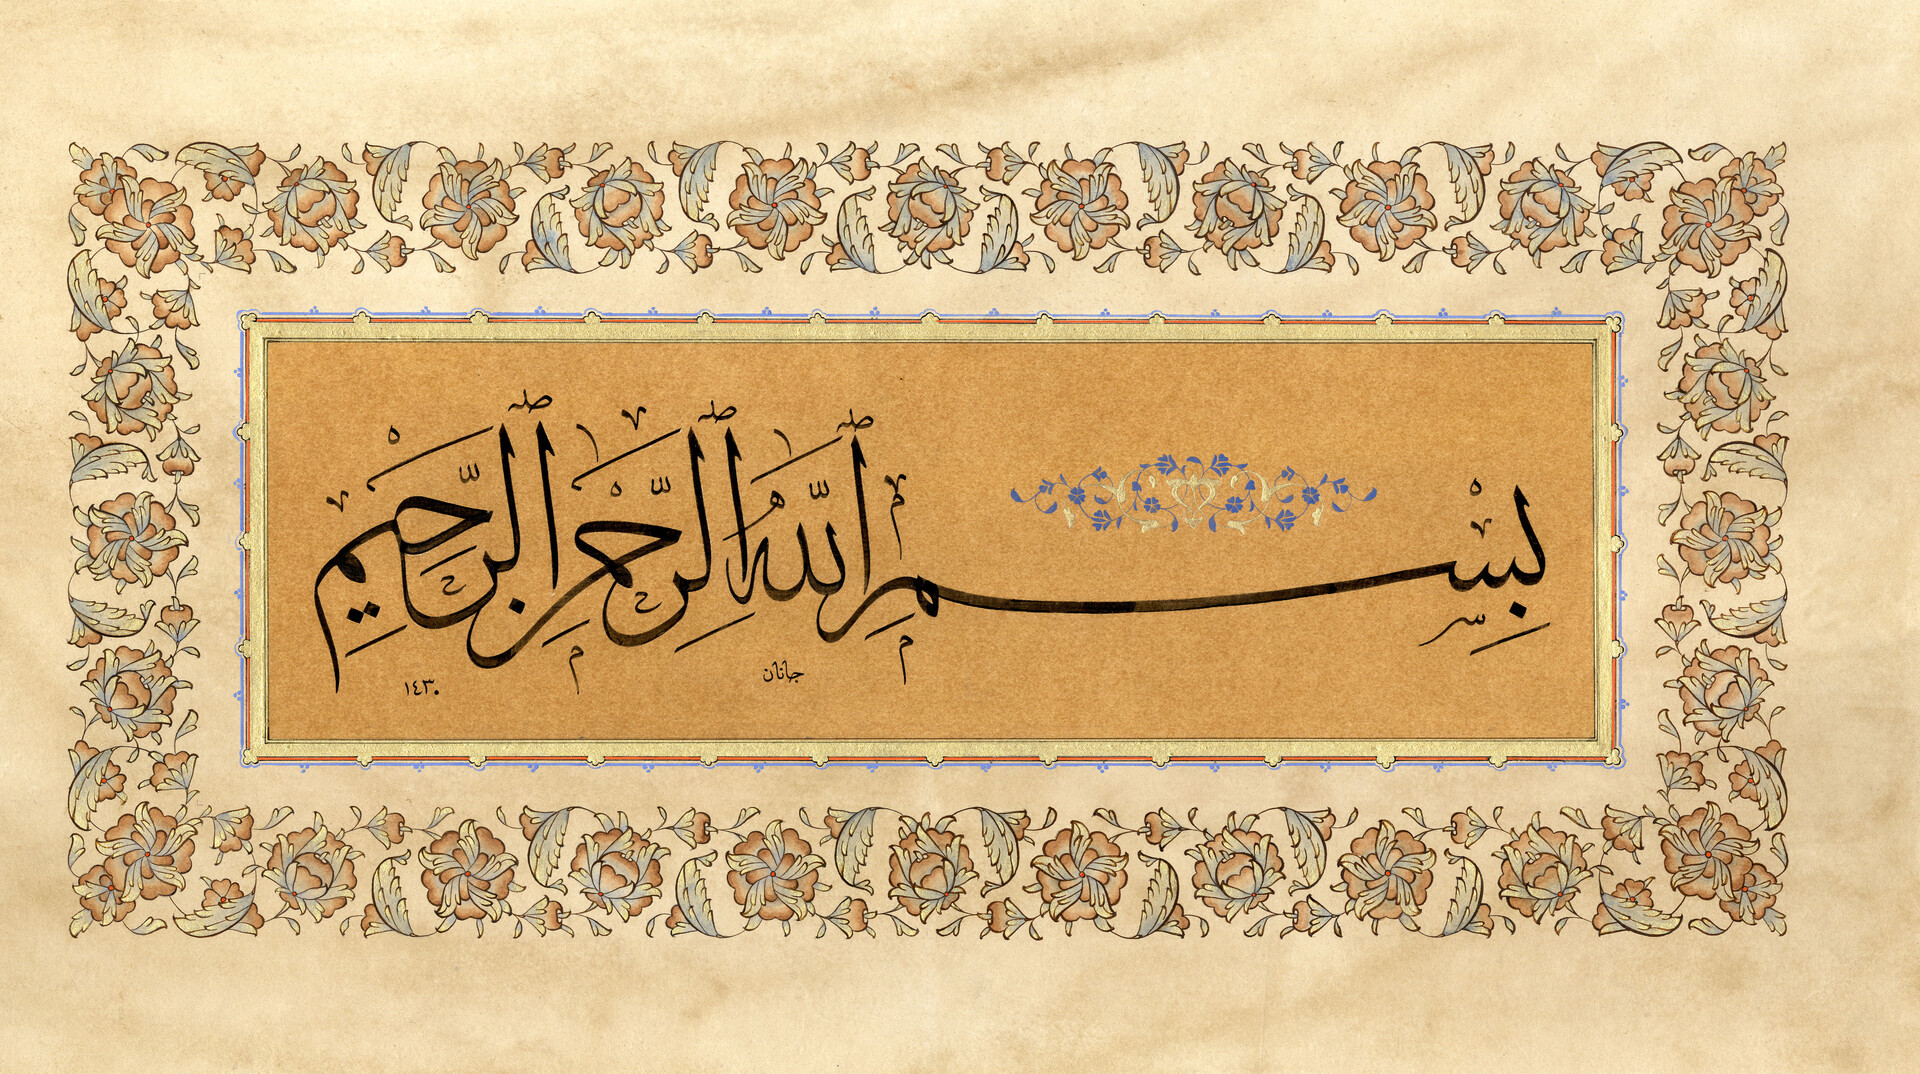 بِسْمِ ٱللَّهِ ٱلرَّحْمَٰنِ ٱلرَّحِيمِ
جانان
١٤٣٠